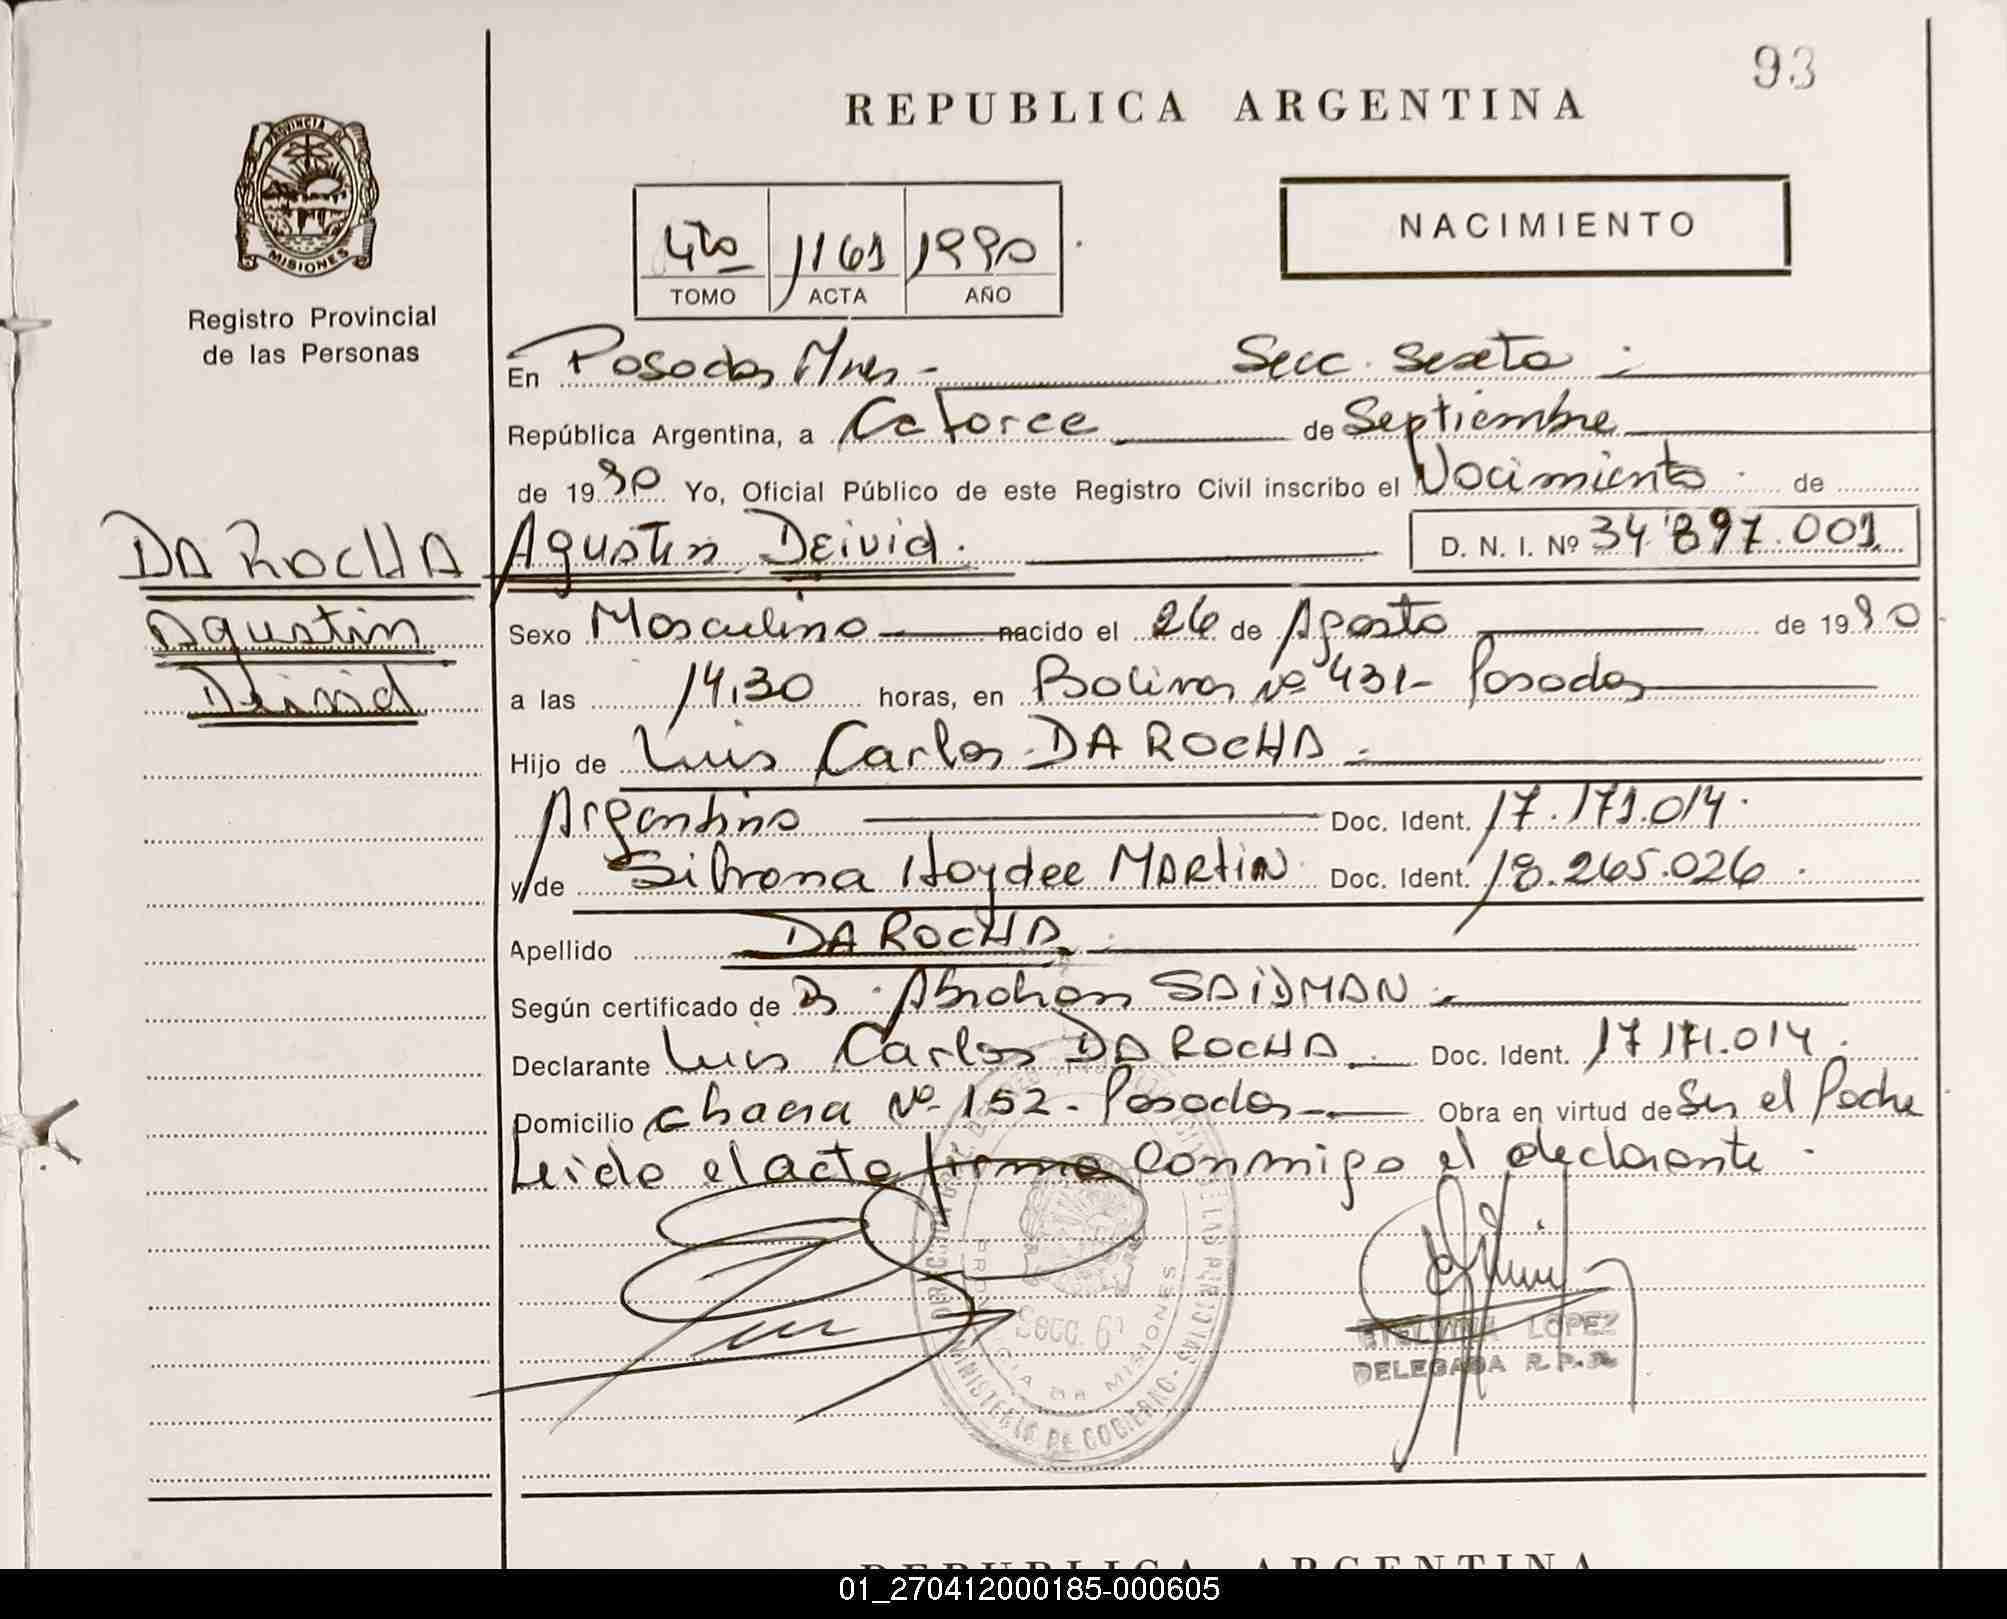 93
REPUBLICA ARGENTINA
PROVINCIA DE
MISIONES
Registro Provincial
de las Personas
4to 1161 1990
TOMO ACTA AÑO
NACIMIENTO
En Posadas Mnes - Secc. Sexta
República Argentina, a Catorce de Septiembre
de 1990 Yo, Oficial Público de este Registro Civil inscribo el Nacimiento de
DA ROCHA
Agustin
Deivid
Agustin Deivid. D. N. I. Nº 34.897.001
Sexo Masculino nacido el 26 de Agosto de 1990
a las 14,30 horas, en Bolivar Nº 431- Posadas
Hijo de Luis Carlos DA ROCHA
Argentino Doc. Ident. 17.171.014.
y de Silvana Haydee MARTIN Doc. Ident. 18.265.026
Apellido DA ROCHA
Según certificado de Abraham SAIDMAN
Declarante Luis Carlos DA ROCHA Doc. Ident. 17.171.014
Domicilio chacra Nº 152 - Posadas Obra en virtud de Ser el Padre
Leido el acta firma conmigo el declarante
Secc. 6ª
PROVINCIA DE MISIONES
MINISTERIO DE GOBIERNO
ETELVINA LOPEZ
DELEGADA R. P. P.
REPUBLICA ARGENTINA
01_270412000185-000605